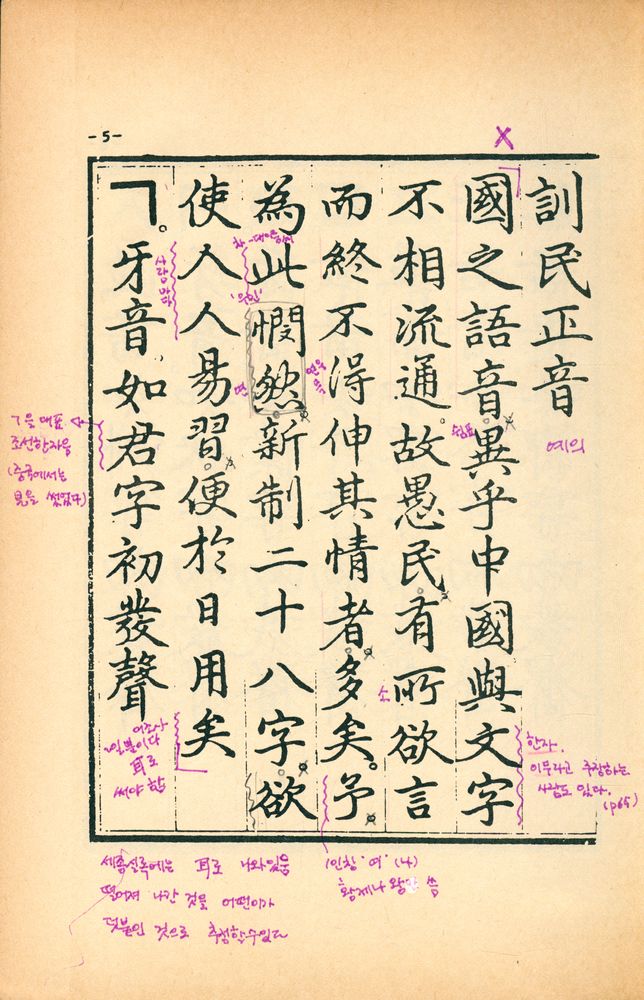 - 5 -
X
訓民正音
國之語音。異乎中國。與文字
不相流通。故愚民。有所欲言
而終不得伸其情者。多矣。予。
為此憫然。新制二十八字。欲
使人人易習。便於日用矣
ㄱ。牙音。如君字初發聲
예의
쉼표
소
한자.
이두라고 추정하는
사람도 있다.
(p65)
사람마다
ㄱ을 대표
조선한자음
(중국에서는
見을 썼었다)
어조사
耳로
써야 함
세종실록에는 耳로 나와있음
떨어져 나간 것을 어떤이가
덧붙인 것으로 추정할수있다
(인칭 '여' (나)
황제나 왕만 씀